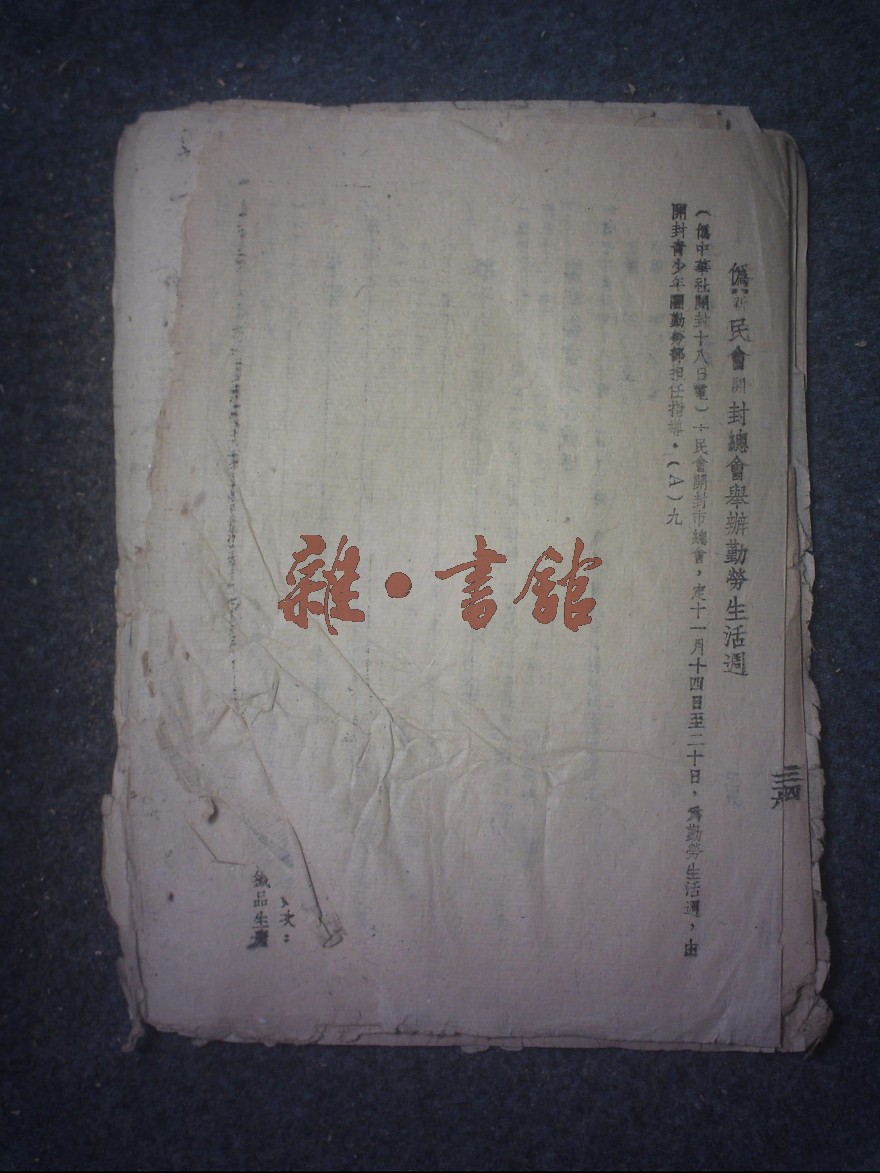 偽新民會開封總會舉辦勤勞生活週
(偽中華社開封十八日電)民會開封市總會,定十一月十四日至二十日,為勤勞生活週,由
開封青少年團勤勞部担任指導。(A)九
三四
六
次:
織品生產
雜·書館